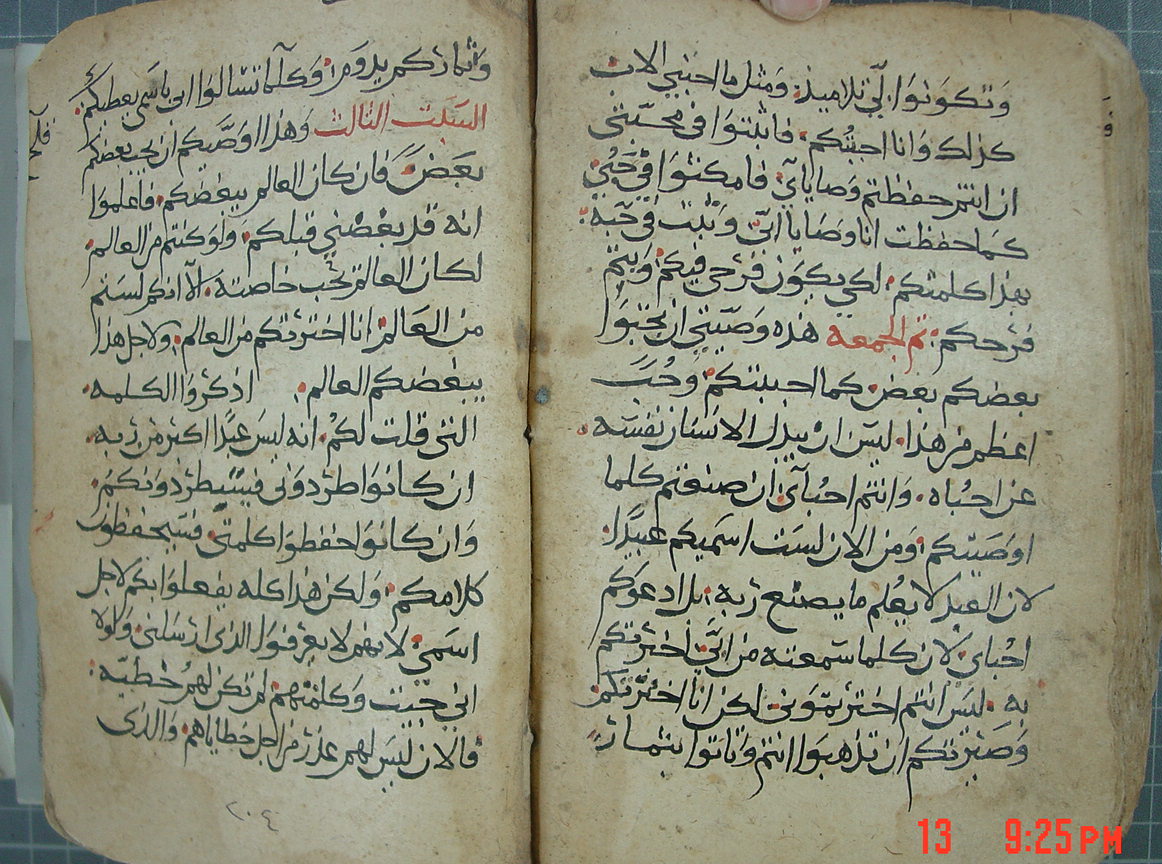 وَتكونوَا لي تلاميذ. وَمثل ما احبني الاب
كذلك وَانا احببتُكم. فاثبتوَا في محبتي
ان انتم حفظتم وَصاياي. فامكثوَا في حُبي
كما حفظت انا وصَايا ابي. وَثبت في حُبه.
بهذا كلمتكم. لكي يكوَن فرَحي فيكم وَيتم
فرَحكم. تم الجمعه هذه وَصيتي ان تحبوَا
بعضكم بعض كما احببتكم. وَحُب
اعظم من هذا. ليسَ ان يبدل الانسَان نفسَه
عن احبُاه. وَانتم احبُاي ان صنعتم كلما
اوصَيتكم. وَمن الان لست اسَميكم عبيدًا.
لان العبد لا يعُلم ما يصنع رَبه. بل ادعوَكم
احبُاي. لان كلما سَمعته من ابي اخبرَتكم
به. ليسَ انتم اخترَتموَني لكن انا اخترَتكم
وَصيرَتكم ان تذهبوَا انتم وَتاتوَا بثمار.
وَاثمارَكم يدوَمن. وَكلما تسالوَا ابي باسمي يعطيكم.
السَبت الثالت وَهذا اوصَيكم ان يحب بعضكم
بعَض. فان كان العالم يبغضكم. فاعلموَا
انه قد بغضني قبلكم. وَلوَ كنتم من العالم
لكان العالم يحُب خاصته. الا انكم لستم
من العَالم. انا اخترَتكم من العالم. وَلاجل هذا
يبغضكم العالم. اذكرُوَا الكلمه.
التي قلت لكُم. انه ليسَ عبدًا اكثر من رَبه.
ان كانوَا طرَدوَني فسَيطرَدوَنكم.
وَان كانوَا حفظوَا كلمتي. فسَيحفظوَن
كلامكم. وَلكن هذا كله يفعلوَا بكم لاجل
اسَمي. لانهم لا يعرَفوَا الذي ارَسَلني. وَلوَلا
اني جيت وَكلمتهم لم تكن لهم خُطيه.
فالان ليسَ لهم عذرَ من اجل خطاياهم. وَالذي
٢٠٤
13 9:25PM